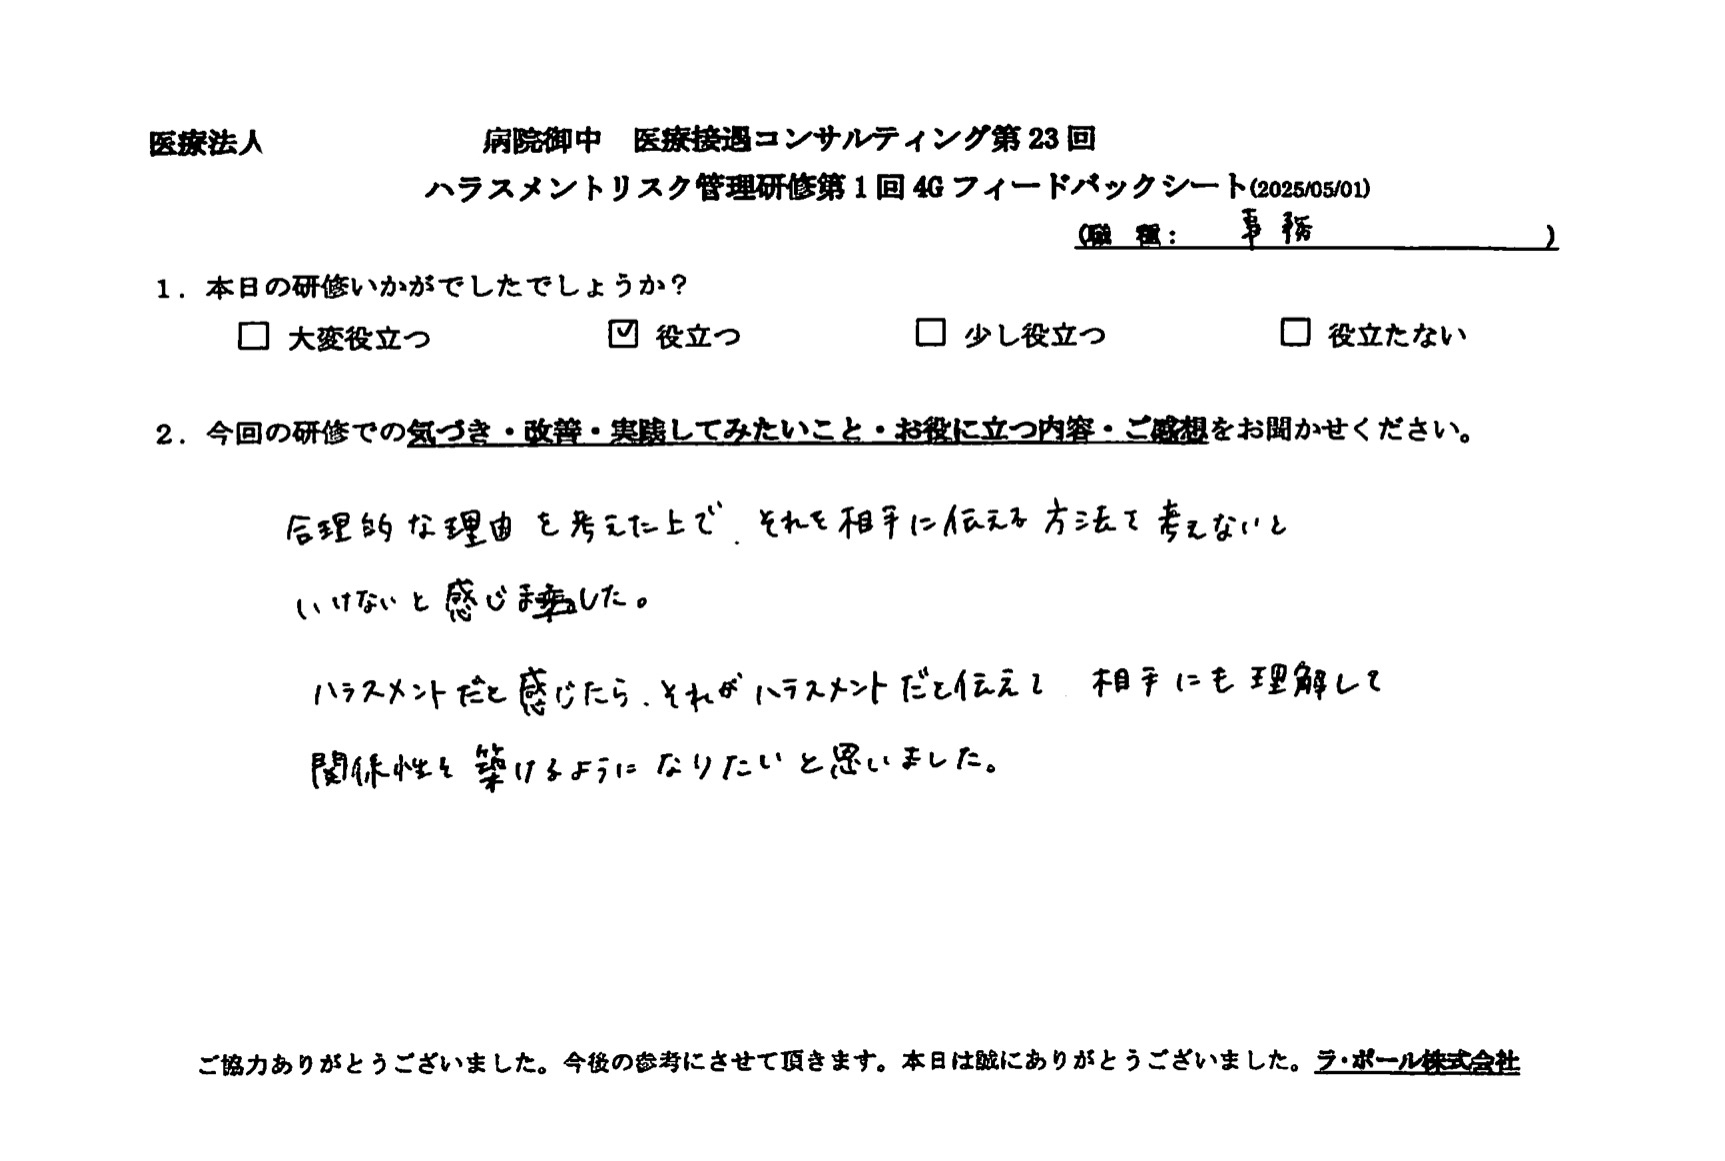 医療法人 病院御中 医療接遇コンサルティング第23回
ハラスメントリスク管理研修第1回4Gフィードバックシート(2025/05/01)
(職 種: 事務 )
1. 本日の研修いかがでしたでしょうか?
□ 大変役立つ ☑ 役立つ □ 少し役立つ □ 役立たない
2. 今回の研修での気づき・改善・実践してみたいこと・お役に立つ内容・ご感想をお聞かせください。
合理的な理由を考えた上で、それを相手に伝える方法て考えないと
いけないと感じました。
ハラスメントだと感じたら、それがハラスメントだと伝えて 相手にも理解して
関係性を築けるようになりたいと思いました。
ご協力ありがとうございました。今後の参考にさせて頂きます。本日は誠にありがとうございました。ラ・ポール株式会社